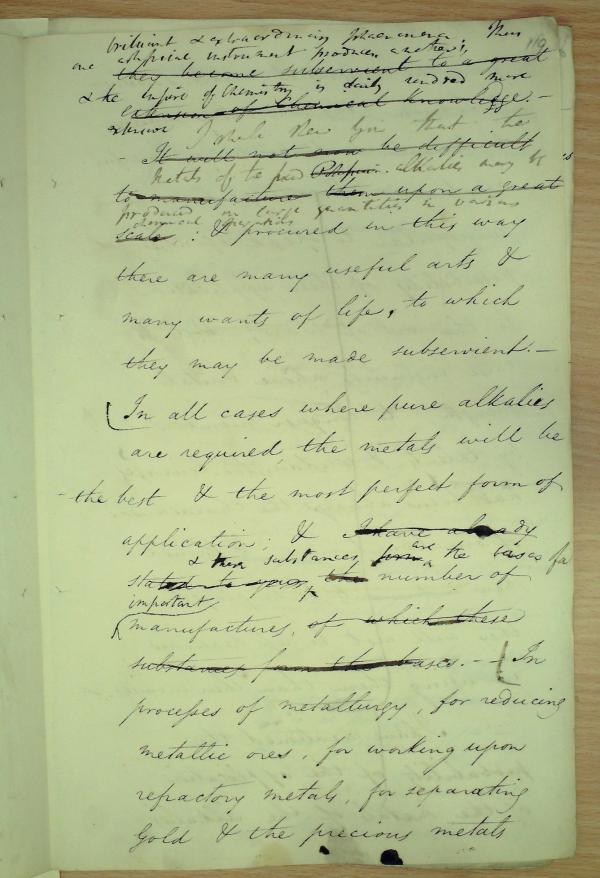 119
brilliant & extraordinary phaenomena. Thus
one artificial instrument produces another,
they become subservient to a great
& the Empire of Chemistry is daily rendered more
extension of Chemical knowledge. -
extensive
I shall shew you that the
It will not now be difficult
metals of the fixed Potassium alkalies may be
to manufacture them upon a great
produced in large quantities in various
chemical
scale, : & procured in this way
there are many useful arts &
many wants of life, to which
they may be made subservient. -
In all cases where pure alkalies
are required, the metals will be
the best & the most perfect form of
application; & I have already
& these substances form are the bases for
stated to you, the number of
important
manufactures, of which these
substances form the bases. - - In
processes of metallurgy, for reducing
metallic ores, for working upon
refractory metals, for separating
Gold & the precious metals